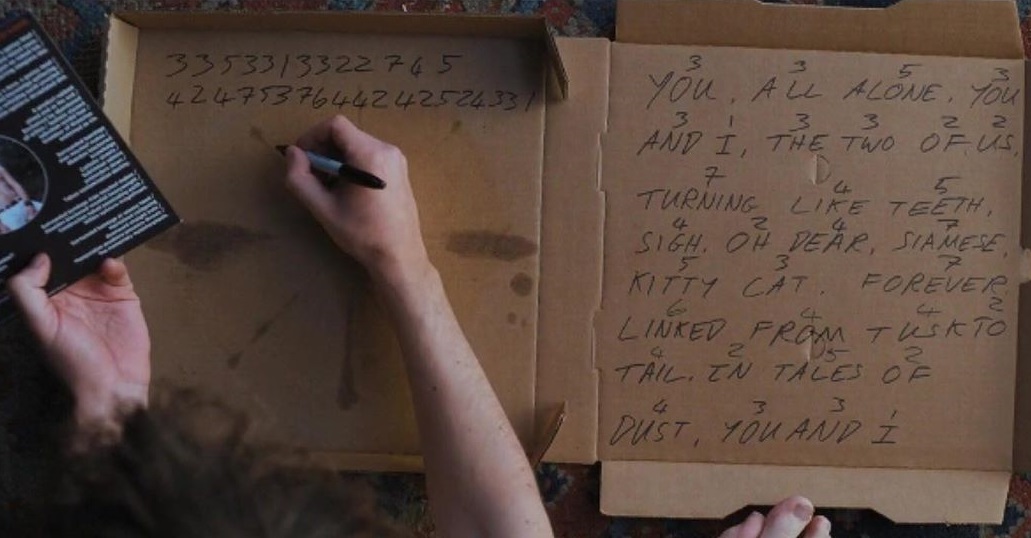 3353313322 7 4 5
4247537644242524331
3 3 5 3
YOU, ALL ALONE, YOU
3 1 3 3 2 2
AND I, THE TWO OF US,
7 4 5
TURNING LIKE TEETH,
4 2 4 7
SIGH. OH DEAR, SIAMESE,
5 3 7
KITTY CAT. FOREVER
6 4 4 2
LINKED FROM TUSK TO
4 2 5 2
TAIL. IN TALES OF
4 3 3 1
DUST, YOU AND I